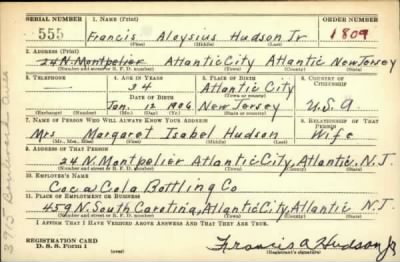 SERIAL NUMBER 1. NAME (Print) ORDER NUMBER
555 Francis Aloysius Hudson Jr 1809
(First) (Middle) (Last)
2. ADDRESS (Print)
24 N. Montpelier Atlantic City Atlantic New Jersey
(Number and street or R. F. D. number) (Town) (County) (State)
3. TELEPHONE 4. AGE IN YEARS 5. PLACE OF BIRTH 6. COUNTRY OF CITIZENSHIP
34 Atlantic City
DATE OF BIRTH (Town or county)
Jan. 12 1906 New Jersey U.S.A
(Exchange) (Number) (Mo.) (Day) (Yr.) (State or country)
7. NAME OF PERSON WHO WILL ALWAYS KNOW YOUR ADDRESS 8. RELATIONSHIP OF THAT PERSON
Mrs Margaret Isabel Hudson Wife
(Mr., Mrs., Miss) (First) (Middle) (Last)
9. ADDRESS OF THAT PERSON
24 N. Montpelier Atlantic City, Atlantic, N.J.
(Number and street or R. F. D. number) (Town) (County) (State)
10. EMPLOYER'S NAME
Coca Cola Bottling Co
11. PLACE OF EMPLOYMENT OR BUSINESS
459 N. South Carolina, Atlantic City, Atlantic N.J.
(Number and street or R. F. D. number) (Town) (County) (State)
I AFFIRM THAT I HAVE VERIFIED ABOVE ANSWERS AND THAT THEY ARE TRUE.
REGISTRATION CARD
D. S. S. Form 1 Francis A Hudson Jr